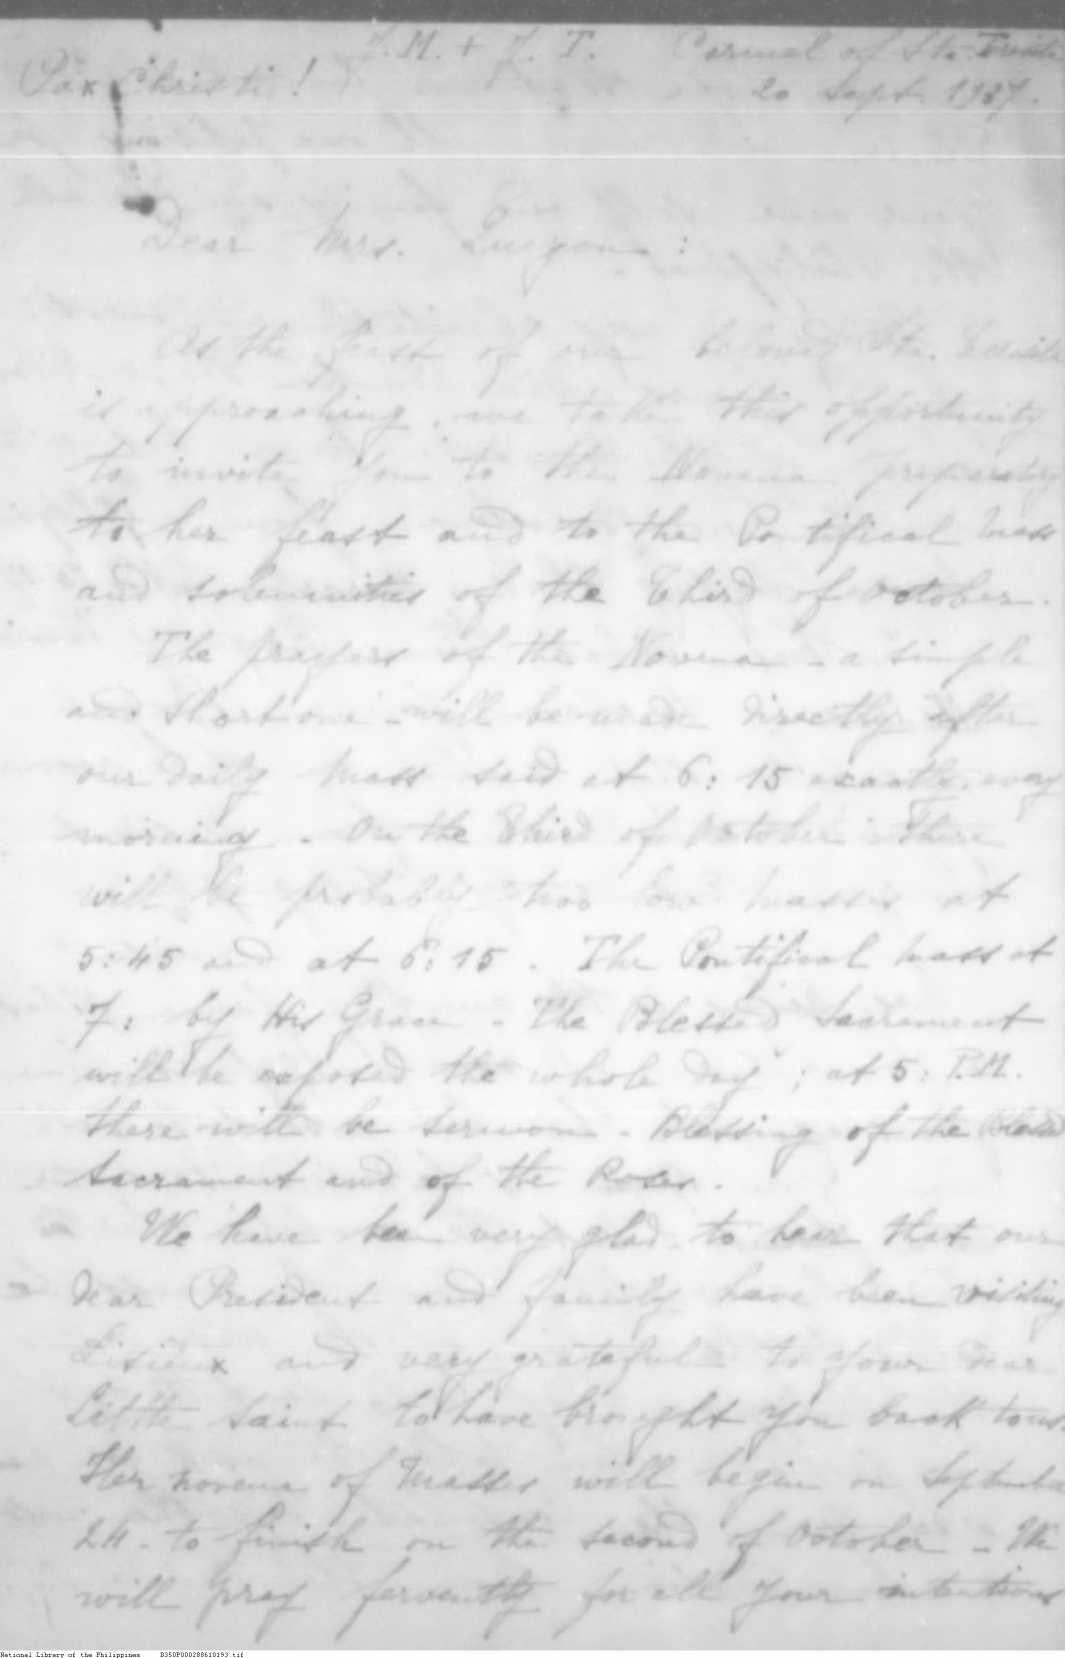 J.M. + J. T. Carmel of Ste. Teresita
Pax Christi !
20 Sept. 1937.
Dear Mrs. Quezon :
As the feast of our beloved Ste.
is approaching, we take this opportunity
to invite you to the Novena preparatory
to her feast and to the Pontifical Mass
and solemnities of the Third of October.
The prayers of the Novena - a simple
and short one - will be made directly after
our daily Mass said at 6:15 exactly, every
morning - On the Third of October There
will be probably two low Masses at
5:45 and at 6:15. The Pontifical Mass at
7: by His Grace - The Blessed Sacrament
will be exposed the whole day ; at 5: P.M.
there will be sermon - Blessing of the Blessed
Sacrament and of the Roses.
We have been very glad to hear that our
dear President and family have been visiting
Lisieux and very grateful to your dear
Little Saint to have brought you back to us.
Her novena of Masses will begin on September
24 - to finish on the second of October - We
will pray fervently for all your intentions
National Library of the Philippines B350P000288610193.tif